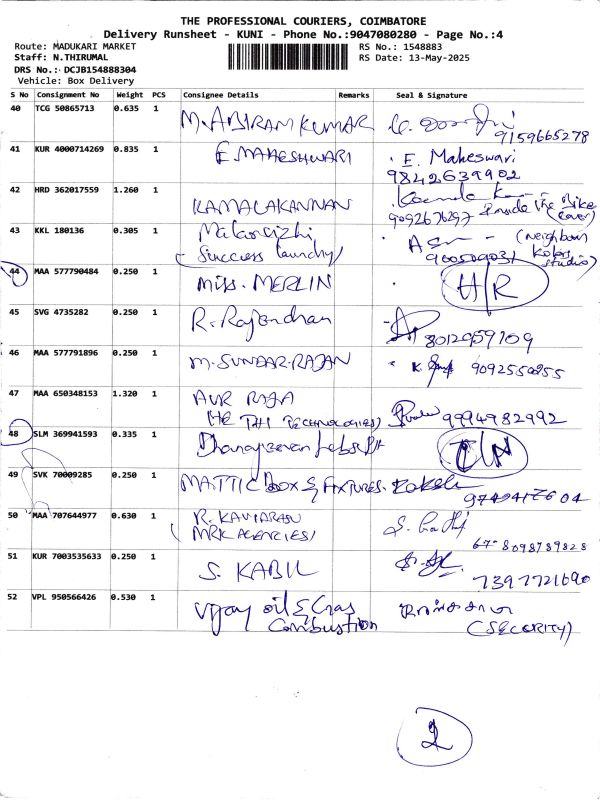 THE PROFESSIONAL COURIERS, COIMBATORE
Delivery Runsheet - KUNI - Phone No.:9047080280 - Page No.:4
Route: MADUKARI MARKET
RS No.: 1548883
Staff: N.THIRUMAL
RS Date: 13-May-2025
DRS No.: DCJB154888304
Vehicle: Box Delivery
S No Consignment No Weight PCS Consignee Details Remarks Seal & Signature
40 TCG 50865713 0.635 1 M. ABIRAM KUMAR
9159665278
41 KUR 4000714269 0.835 1 E. MAHESHWARI E. Maheswari
9842639902
42 HRD 362017559 1.260 1 KAMALAKANNAN
9092676297 Inside the Bike
(cover)
43 KKL 180136 0.305 1
(Success laundry)
(neighbour
Kolors
studio)
44 MAA 577790484 0.250 1 Miss. MERLIN H/R
45 SVG 4735282 0.250 1 R. Rajendhan
8012959109
46 MAA 577791896 0.250 1 M. SUNDAR RAJAN 9092550855
47 MAA 650348153 1.320 1 AVR RAJA
TECHNOLOGIES) 9994982992
48 SLM 369941593 0.335 1
49 SVK 70009285 0.250 1 MATTIC Box & FIXTURES.
50 MAA 707644977 0.630 1 R. KAVIARAN
(MRK AGENCIES)
8098789828
51 KUR 7003535633 0.250 1 S. KABIL
7397721690
52 VPL 950566426 0.530 1 Vijay oil & Gas
Combustion
(SECURITY)
2